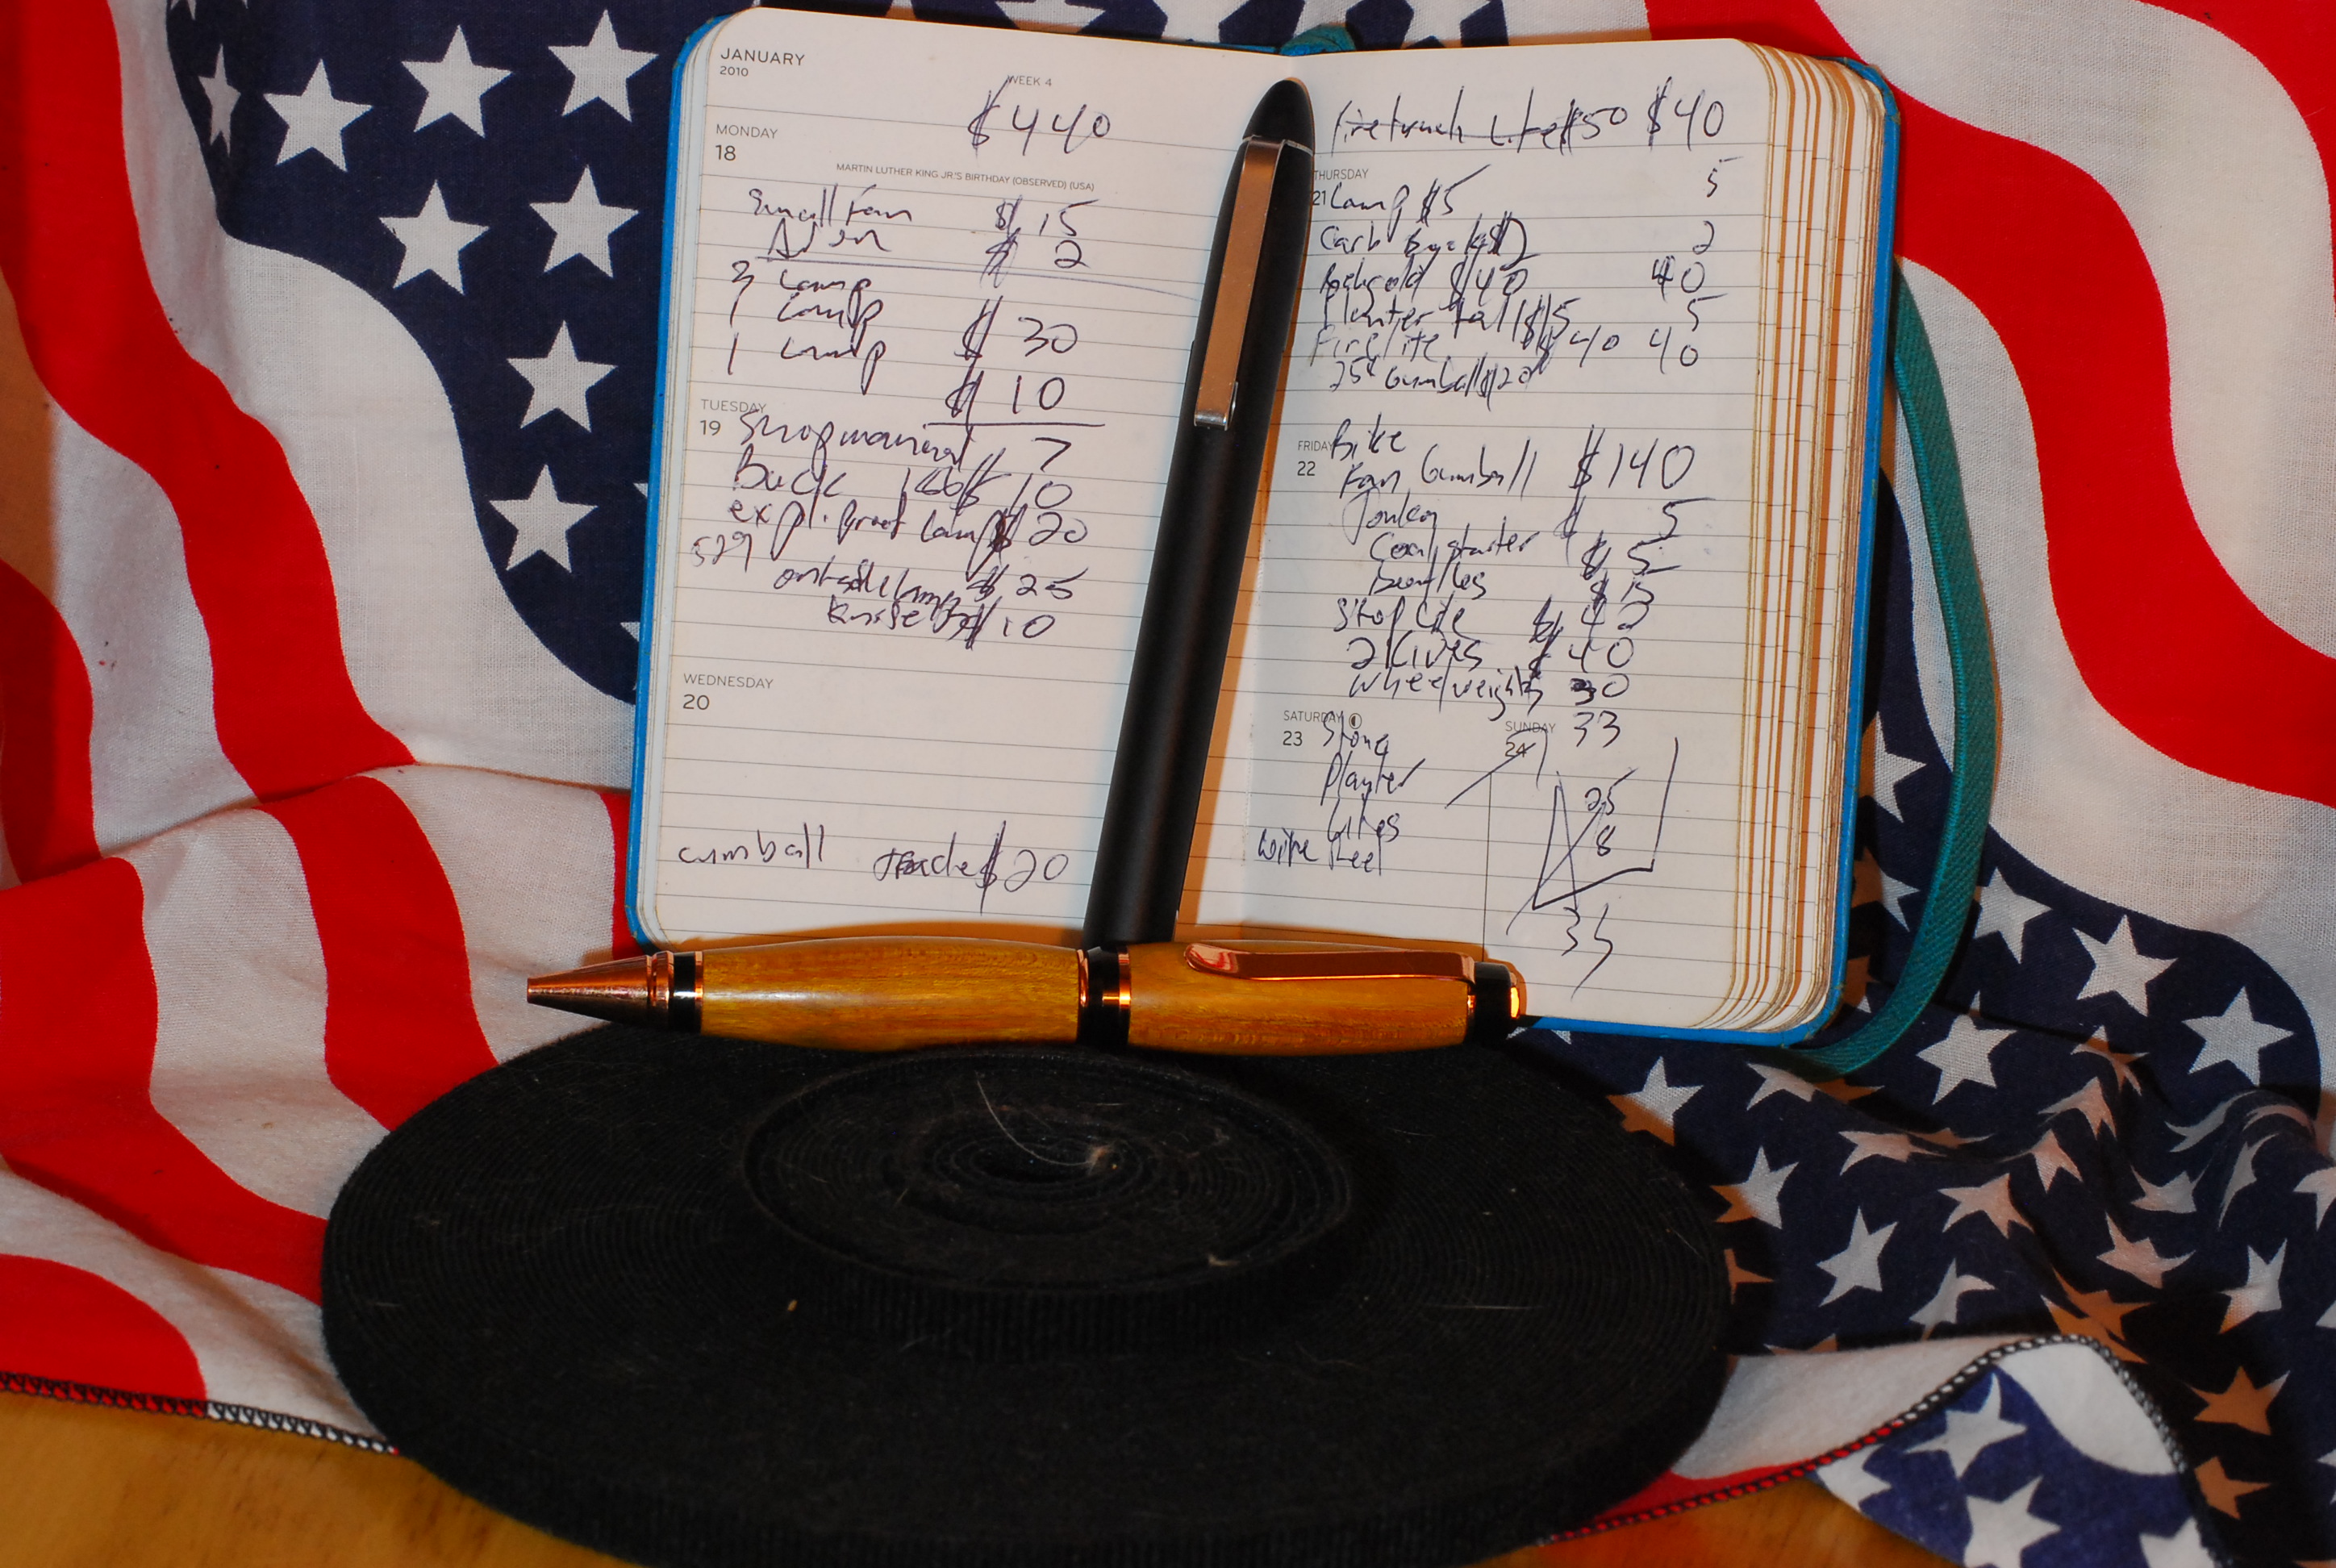 JANUARY
2010
WEEK 4
$440
MONDAY
18
MARTIN LUTHER KING JR.'S BIRTHDAY (OBSERVED) (USA)
Small Fan $ 15
$ 2
3 Lamp
1 Lamp $ 30
1 Lamp
$ 10
TUESDAY
19
Shop manual 7
Buck 10
expl. proof Lamp $ 20
529
outside lamp $ 25
knife $ 10
WEDNESDAY
20
Gumball trade $20
Firetruck Lite $50 $40
THURSDAY 5
21 Lamp $5
Carb $2 2
$40 40
Planter tall $15 5
Fire lite $ 40 40
25¢ Gumball $20
FRIDAY
22
Bike
Fan Gumball $140
$ 5
Coal starter $ 5
$ 15
Stop Lite $ 42
2 Knives $ 40
Wheel weights 30
SATURDAY
23
SUNDAY
24
33
Stone
Planter
25
8
Wire Reel
33